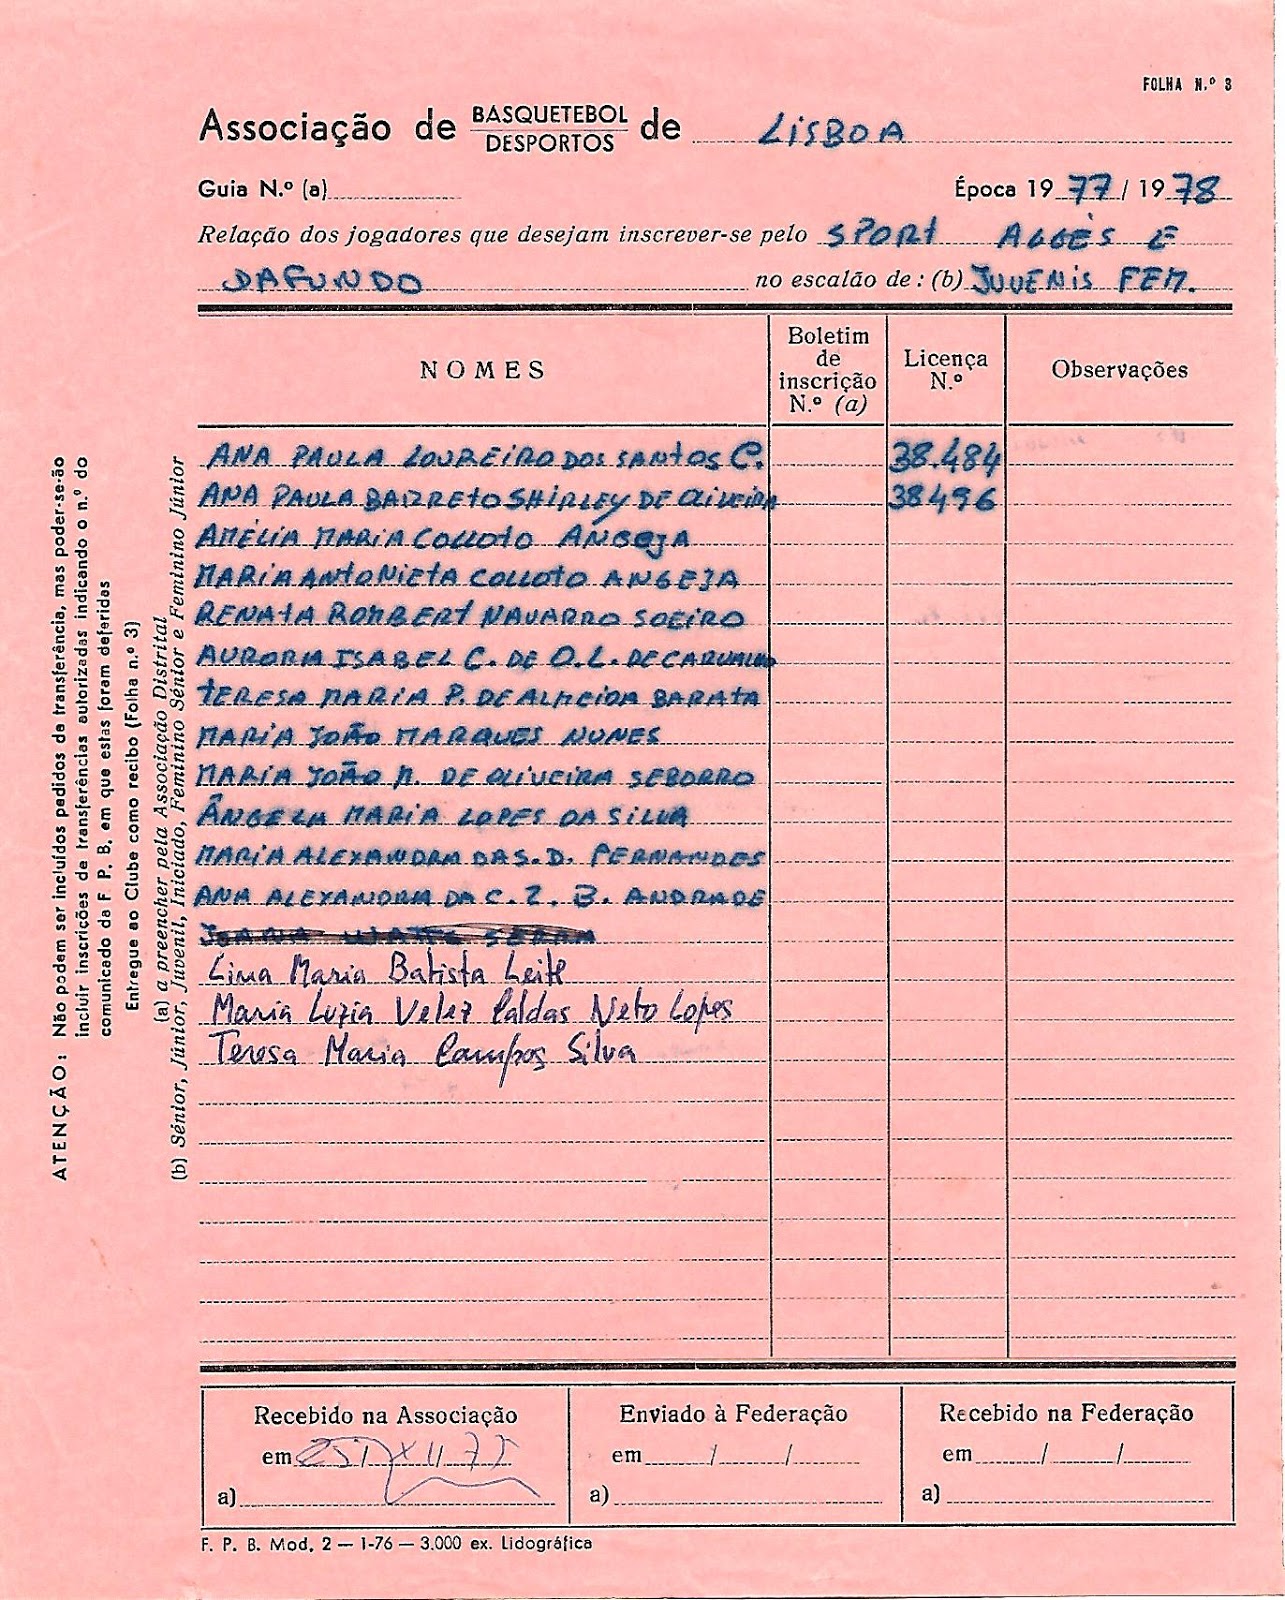 FOLHA N.º 3
Associação de BASQUETEBOL DESPORTOS de LISBOA
Guia N.º (a) Época 1977/1978
Relação dos jogadores que desejam inscrever-se pelo SPORT ALGÉS E
DAFUNDO no escalão de: (b) JUVENIS FEM.
NOMES
Boletim
de
inscrição
N.º (a)
Licença
N.º
Observações
ANA PAULA LOUREIRO DOS SANTOS C. 38.484
ANA PAULA BARRETO SHIRLEY DE OLIVEIRA 38496
AMÉLIA MARIA COLLOTO ANGEJA
MARIA ANTONIETA COLLOTO ANGEJA
RENATA ROMBERT NAVARRO SOEIRO
ISABEL C. DE O. L. DE CARVALHO
TERESA MARIA P. DE ALMEIDA BARATA
MARIA JOÃO MARQUES NUNES
MARIA JOÃO M. DE OLIVEIRA SEBORRO
ÂNGELA MARIA LOPES DA SILVA
MARIA ALEXANDRA DA S. D. FERNANDES
ANA ALEXANDRA DA C. Z. B. ANDRADE
SERRA
Maria Batista Leite
Maria Luzia Velez Caldas Neto Lopes
Teresa Maria Campos Silva
ATENÇÃO: Não podem ser incluídos pedidos de transferência, mas poder-se-ão
incluir inscrições de transferências autorizadas indicando o n.º do
comunicado da F. P. B. em que estas foram deferidas
Entregue ao Clube como recibo (Folha n.º 3)
(a) a preencher pela Associação Distrital
(b) Sénior, Júnior, Juvenil, Iniciado, Feminino Sénior e Feminino Júnior
Recebido na Associação
em
a)
Enviado à Federação
em / /
a)
Recebido na Federação
em / /
a)
F. P. B. Mod. 2 — 1-76 — 3.000 ex. Lidográfica